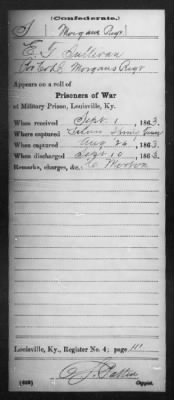 (Confederate.)
S Morgans Regt
E. G. Sullivan
Morgans Regt
Appears on a roll of
Prisoners of War
at Military Prison, Louisville, Ky.
When received Sept. 1, 1863.
Where captured
When captured Aug 26, 1863.
When discharged Sept. 10, 1863.
Remarks, charges, &c.: Morton
Louisville, Ky., Register No. 4; page 111
(639) Copyist.